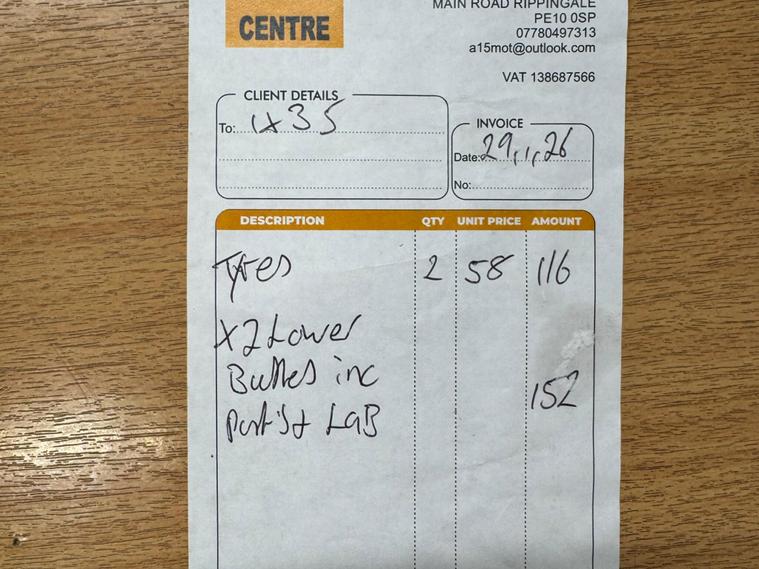 CENTRE
MAIN ROAD RIPPINGALE
PE10 0SP
07780497313
a15mot@outlook.com
VAT 138687566
CLIENT DETAILS
To: 1x35
INVOICE
Date: 29,1,26
No:
DESCRIPTION QTY UNIT PRICE AMOUNT
Tyres 2 58 116
X2 Lower
inc
152
& LAB